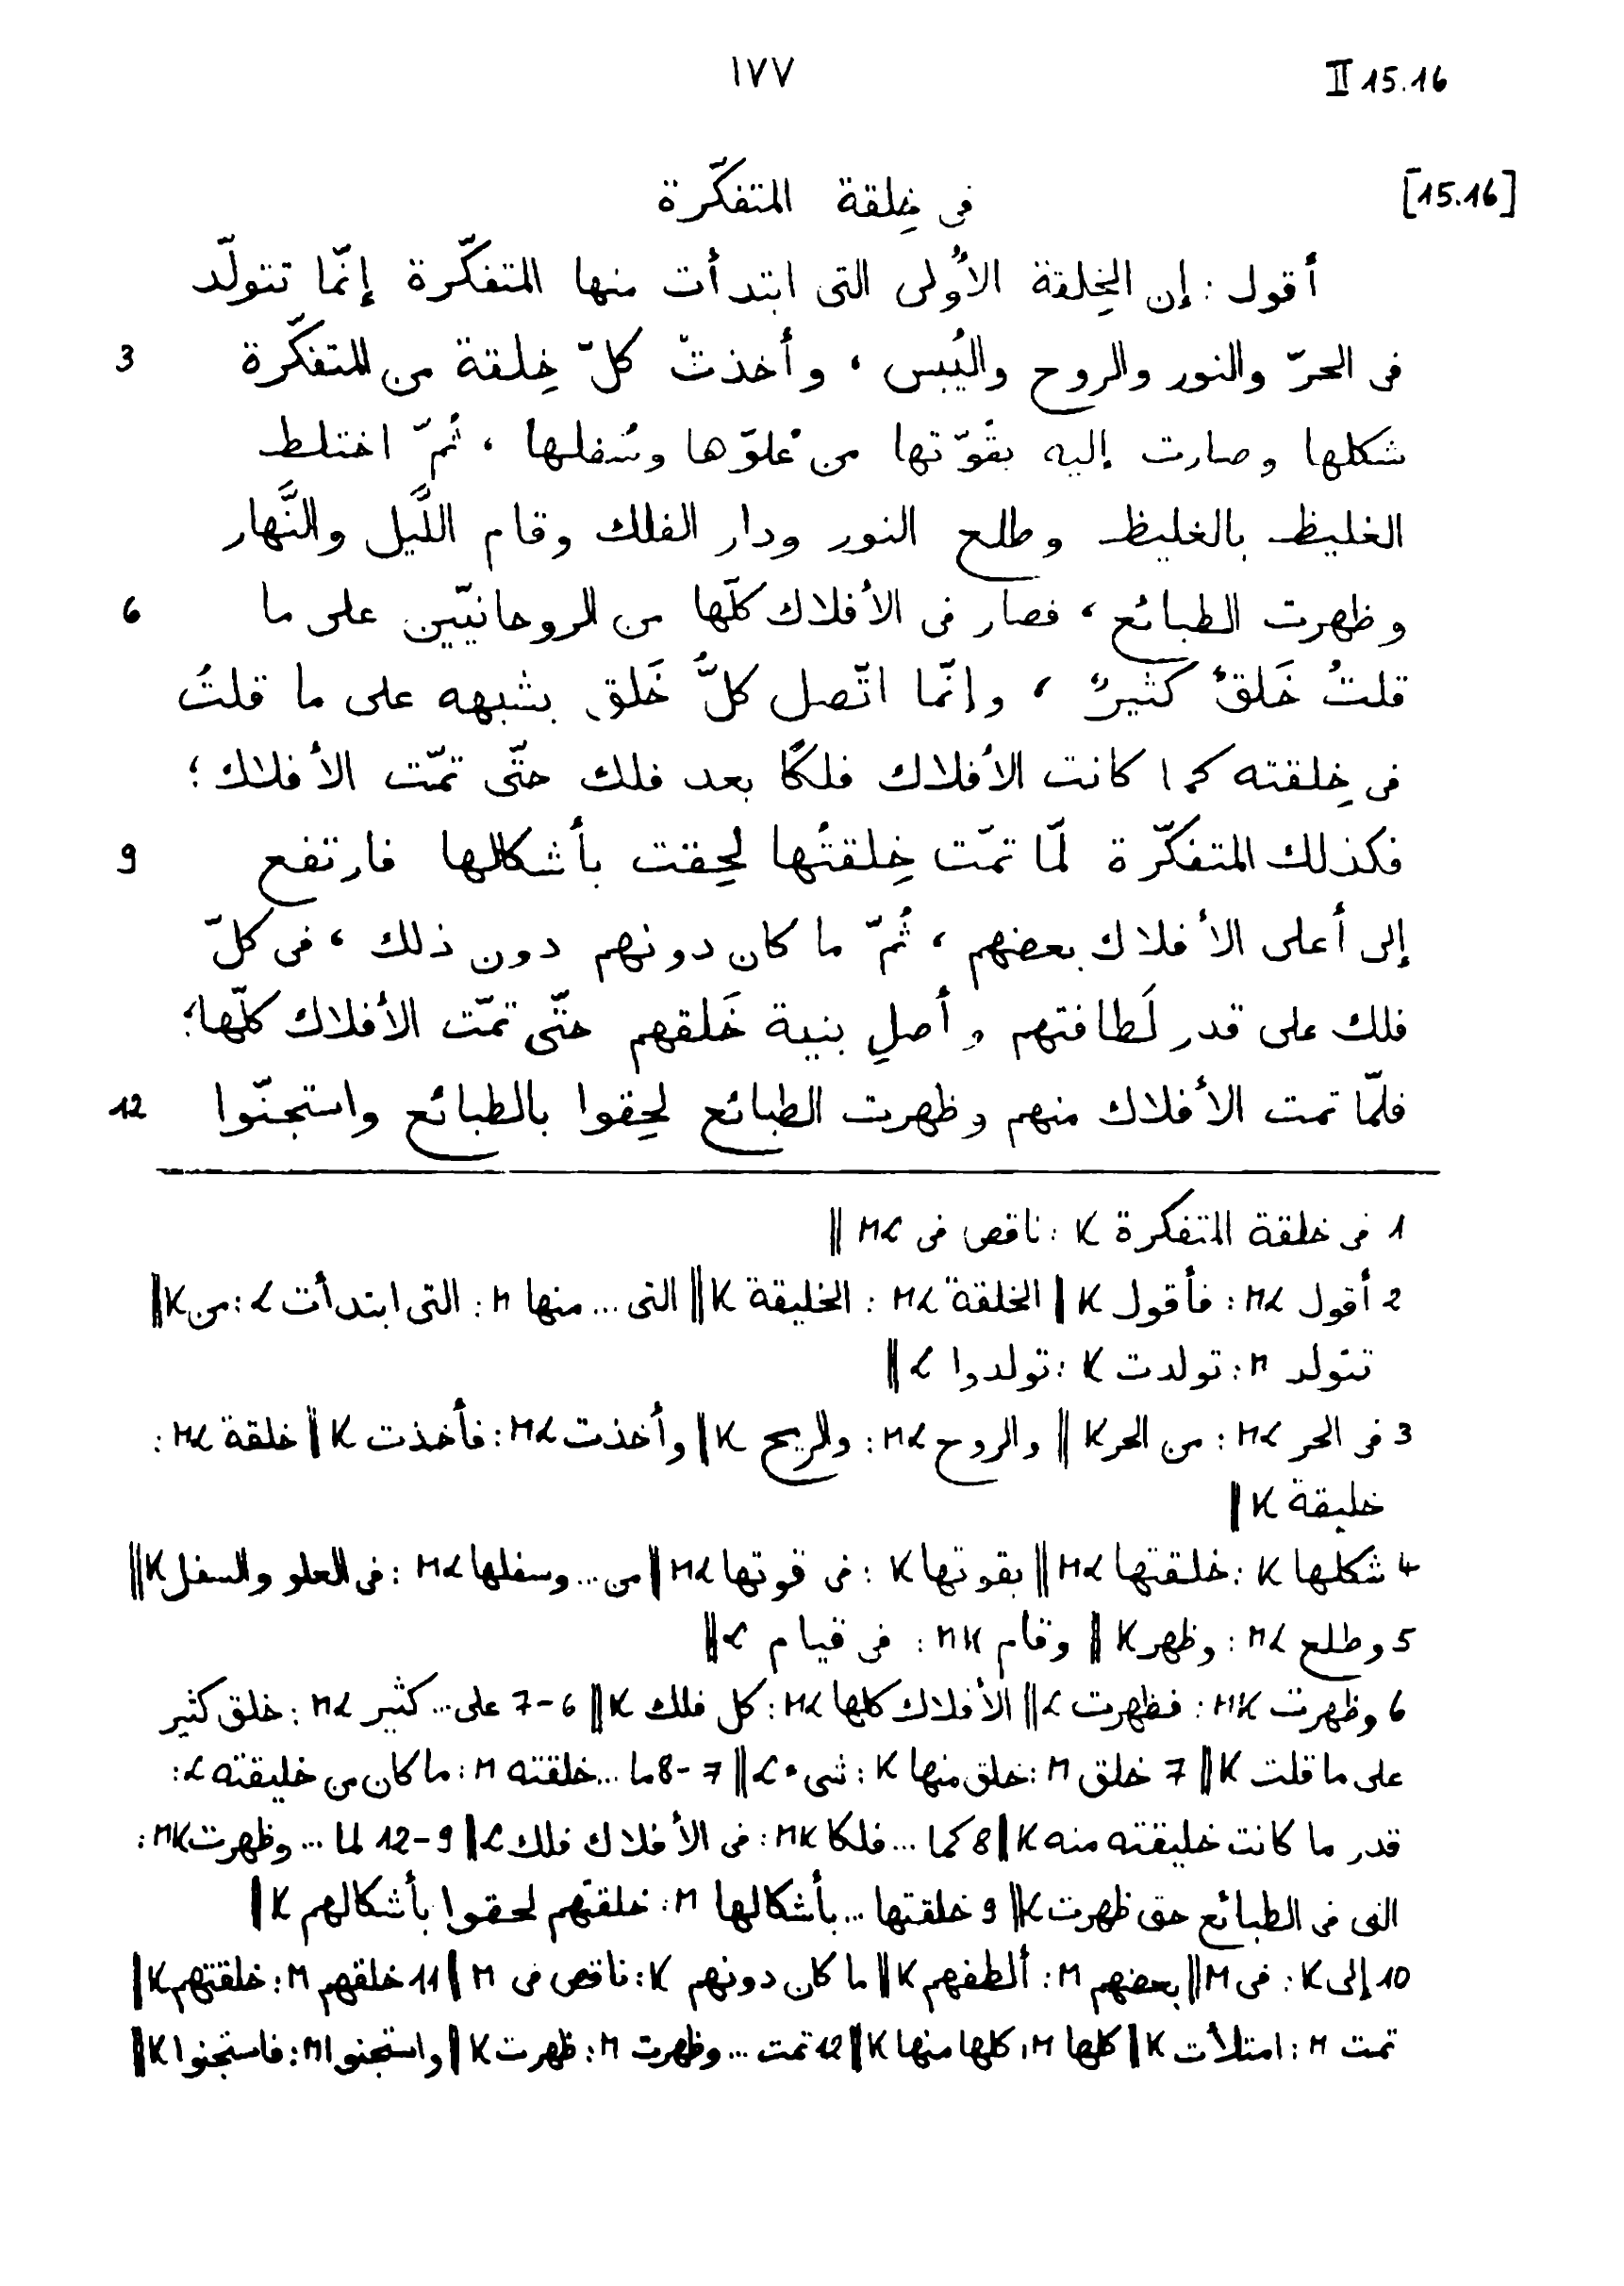 ١٧٧
II 15.16
[15.16]
فى خِلقة المتفكّرة
أقول : إن الخِلقة الأُولى التى ابتدأت منها المتفكّرة إنّما تتولّد
3 فى الحرّ والنور والروح واليُبس ، وأخذتْ كلّ خِلقة من المتفكّرة
شكلها وصارت إليه بقُوّتها من عُلوّها وسُفلها ، ثُمّ اختلط
الغليظ بالغليظ وطلع النور ودار الفلك وقام اللَّيل والنَّهار
6 وظهرت الطبائع ، فصار فى الأفلاك كلّها من الروحانيّين على ما
قلتُ خَلقٌ كثيرٌ ، وإنّما اتّصل كلُّ خَلق بشبهه على ما قلتُ
فى خِلقته كما كانت الأفلاك فلكًا بعد فلك حتّى تمّت الأفلاك ؛
9 فكذلك المتفكّرة لمّا تمّت خِلقتُها لحِقت بأشكالها فارتفع
إلى أعلى الأفلاك بعضهم ، ثُمّ ما كان دونهم دون ذلك ، فى كلّ
فلك على قدر لَطافتهم وأصلِ بنية خَلقهم حتّى تمّت الأفلاك كلّها ؛
12 فلمّا تمت الأفلاك منهم وظهرت الطبائع لحِقوا بالطبائع واستجنّوا
1 فى خلقة المتفكرة K : ناقص فى ML ||
2 أقول ML : فأقول K || الخلقة ML : الخليقة K || التى ... منها M : التى ابتدأت L : من K ||
تتولد M : تولدت K : تولدوا L ||
3 فى الحر ML : من الحر K || والروح ML : والريح K || وأخذت ML : فأخذت K || خلقة ML :
خليقة K ||
4 شكلها K : خلقتها ML || بقوتها K : فى قوتها ML || من ... وسفلها ML : فى العلو والسفل K ||
5 وطلع ML : وظهر K || وقام MK : فى قيام L ||
6 وظهرت MK : فظهرت L || الأفلاك كلها ML : كل فلك K || 6-7 على ... كثير ML : خلق كثير
على ما قلت K || 7 خلق M : خلق منها K : شىء L || 7-8 ما ... خلقته M : ما كان من خليقته L :
قدر ما كانت خليقته منه K || 8 كما ... فلكا MK : فى الأفلاك فلك L || 9-12 لما ... وظهرت MK :
التى فى الطبائع حتى ظهرت K || 9 خلقتها ... بأشكالها M : خلقتهم لحقوا بأشكالهم K ||
10 إلى K : فى M || بعضهم M : ألطفهم K || ما كان دونهم K : ناقص فى M || 11 خلقهم M : خلقتهم K ||
تمت M : امتلأت K || كلها M : كلها منها K || 12 تمت ... وظهرت M : ظهرت K || واستجنوا M : فاستجنوا K ||